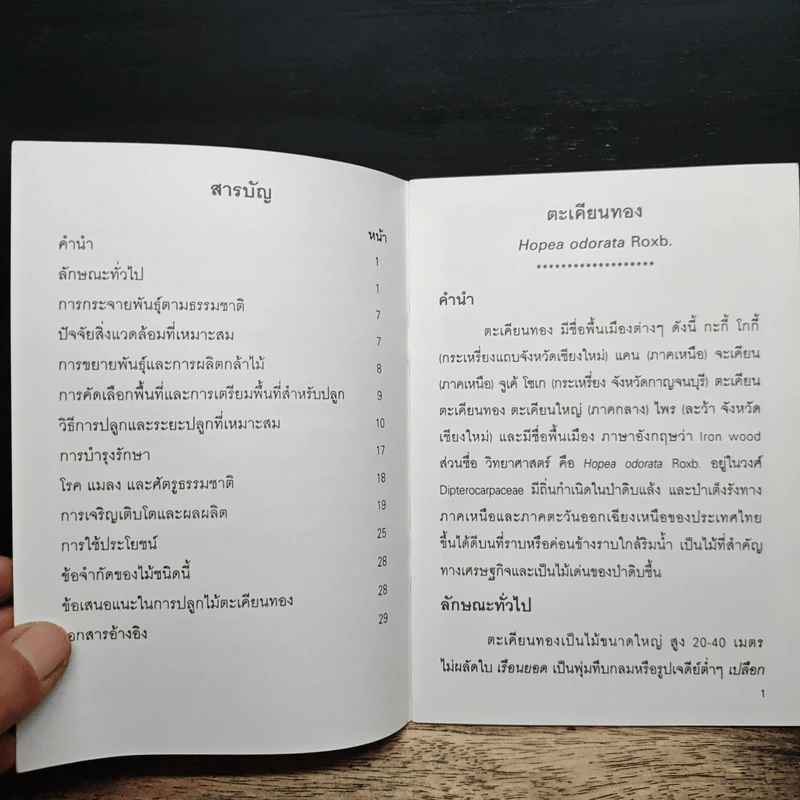 สารบัญ
หน้า
คำนำ 1
ลักษณะทั่วไป 1
การกระจายพันธุ์ตามธรรมชาติ 7
ปัจจัยสิ่งแวดล้อมที่เหมาะสม 7
การขยายพันธุ์และการผลิตกล้าไม้ 8
การคัดเลือกพื้นที่และการเตรียมพื้นที่สำหรับปลูก 9
วิธีการปลูกและระยะปลูกที่เหมาะสม 10
การบำรุงรักษา 17
โรค แมลง และศัตรูธรรมชาติ 18
การเจริญเติบโตและผลผลิต 19
การใช้ประโยชน์ 25
ข้อจำกัดของไม้ชนิดนี้ 28
ข้อเสนอแนะในการปลูกไม้ตะเคียนทอง 28
เอกสารอ้างอิง 29
ตะเคียนทอง
Hopea odorata Roxb.
*******************
คำนำ
ตะเคียนทอง มีชื่อพื้นเมืองต่างๆ ดังนี้ กะกี้ โกกี้
(กระเหรี่ยงแถบจังหวัดเชียงใหม่) แคน (ภาคเหนือ) จะเคียน
(ภาคเหนือ) จูเค้ โซเก (กระเหรี่ยง จังหวัดกาญจนบุรี) ตะเคียน
ตะเคียนทอง ตะเคียนใหญ่ (ภาคกลาง) ไพร (ละว้า จังหวัด
เชียงใหม่) และมีชื่อพื้นเมือง ภาษาอังกฤษว่า Iron wood
ส่วนชื่อ วิทยาศาสตร์ คือ Hopea odorata Roxb. อยู่ในวงศ์
Dipterocarpaceae มีถิ่นกำเนิดในป่าดิบแล้ง และป่าเต็งรังทาง
ภาคเหนือและภาคตะวันออกเฉียงเหนือของประเทศไทย
ขึ้นได้ดีบนที่ราบหรือค่อนข้างราบใกล้ริมน้ำ เป็นไม้ที่สำคัญ
ทางเศรษฐกิจและเป็นไม้เด่นของป่าดิบชื้น
ลักษณะทั่วไป
ตะเคียนทองเป็นไม้ขนาดใหญ่ สูง 20-40 เมตร
ไม่ผลัดใบ เรือนยอด เป็นพุ่มทึบกลมหรือรูปเจดีย์ต่ำๆ เปลือก
1